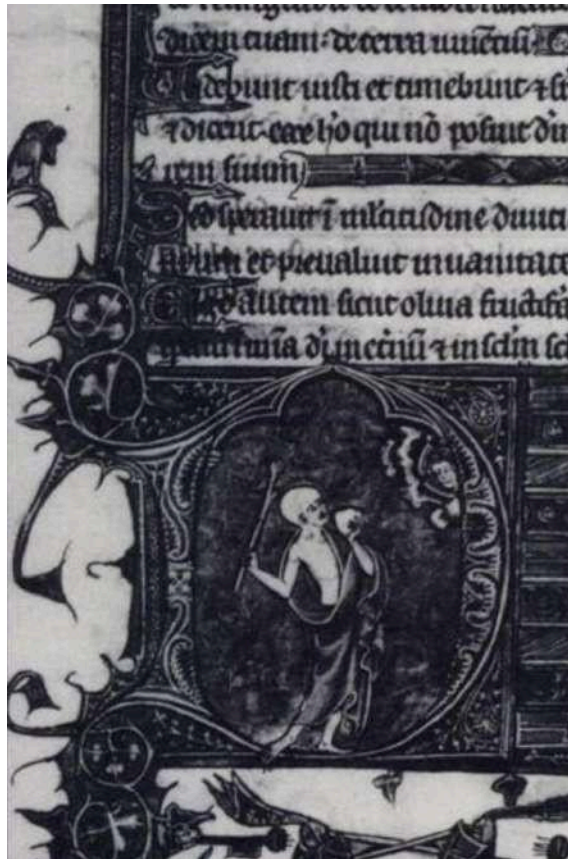 dicem tuam · de terra uiuenciū
Videbunt iusti et timebunt · ⁊
⁊ dicent · ecce hō qui nō posuit
rem suum
Sed sperauit ī ml'titudine diuici
et preualuit in uanitate
Ego autem sicut oliua fructifa
dī in et'nū ⁊ in sclm scl